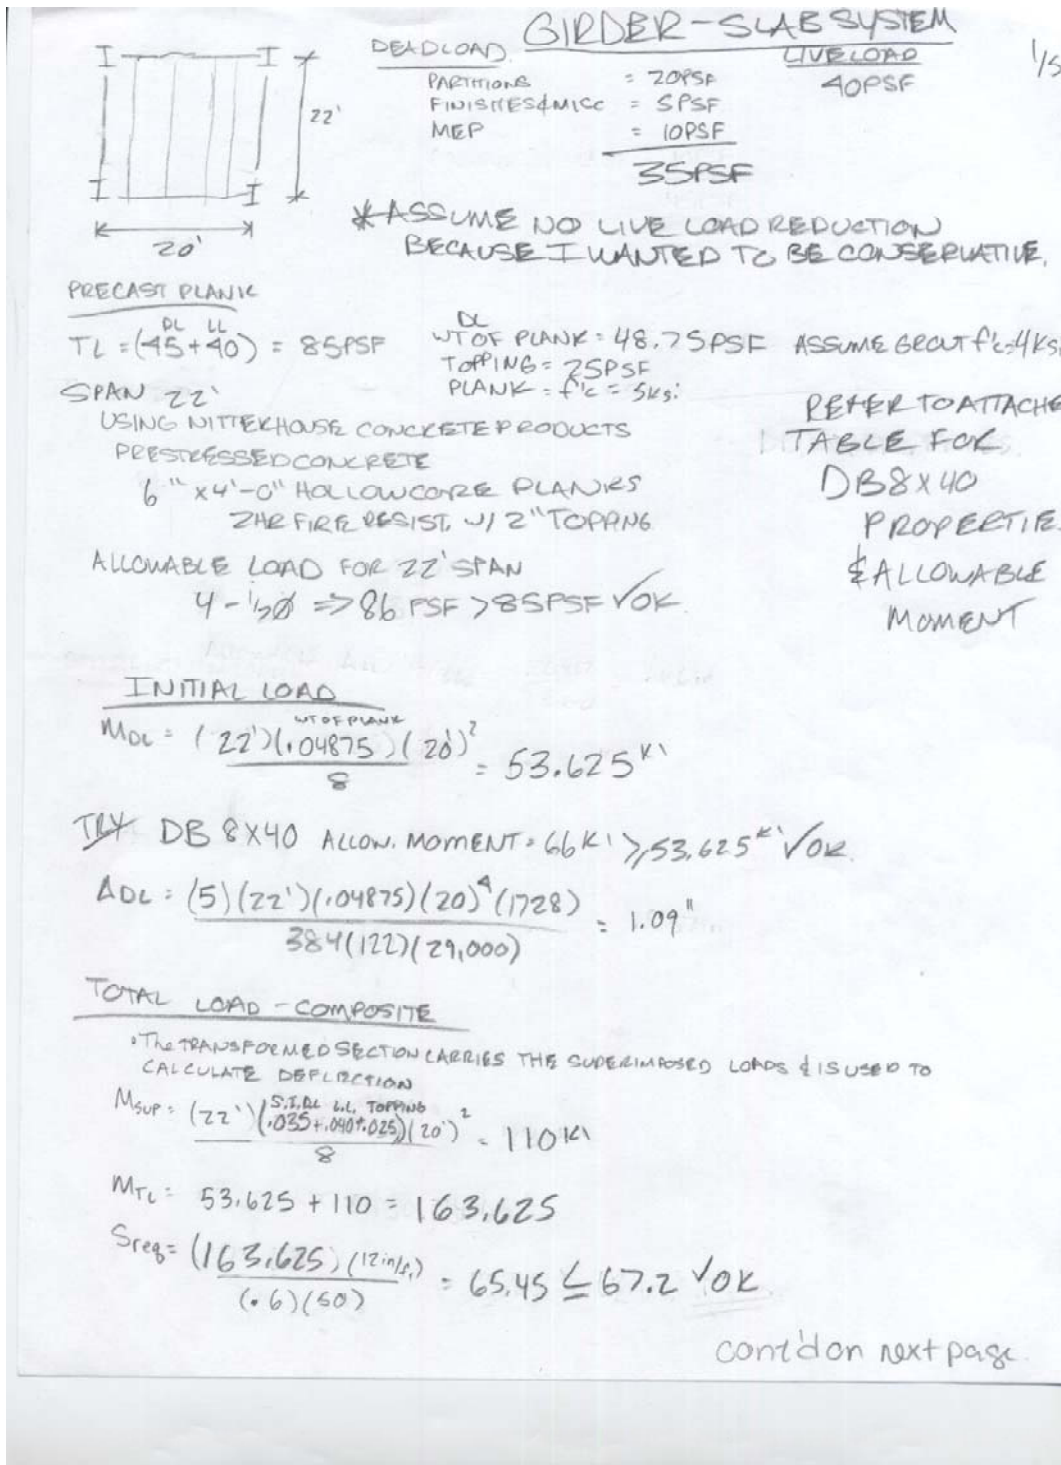 GIRDER - SLAB SYSTEM
1/5
DEADLOAD
LIVELOAD
PARTITIONS = 20PSF
40PSF
FINISHES & MISC = 5PSF
MEP = 10PSF
35PSF
I I
22'
I I
20'
* ASSUME NO LIVE LOAD REDUCTION
BECAUSE I WANTED TO BE CONSERVATIVE.
PRECAST PLANK
DL LL
TL = (45+40) = 85PSF
DL
WT OF PLANK = 48.75PSF ASSUME GROUT f'c=4KSi
TOPPING = 25PSF
PLANK = f'c = 5ksi
SPAN 22'
USING NITTERHOUSE CONCRETE PRODUCTS
PRESTRESSED CONCRETE
6" x 4'-0" HOLLOWCORE PLANKS
2HR FIRE RESIST. W/ 2" TOPPING
REFER TO ATTACHE
TABLE FOR
DB8X40
PROPERTIE
& ALLOWABLE
MOMENT
ALLOWABLE LOAD FOR 22' SPAN
4 - 1/2Ø => 86 PSF > 85PSF √OK
INITIAL LOAD
WT OF PLANK
MDL = (22')(.04875)(20')² / 8 = 53.625 K'
TRY DB 8X40 ALLOW. MOMENT = 66 K' ≥ 53.625 K' √OK.
ΔDL = (5)(22')(.04875)(20)⁴(1728) / 384(122)(29,000) = 1.09"
TOTAL LOAD - COMPOSITE
• The TRANSFORMED SECTION CARRIES THE SUPERIMPOSED LOADS & IS USED TO
CALCULATE DEFLECTION
S.I.DL L.L. TOPPING
MSUP = (22')(.035+.040+.025)(20')² / 8 = 110 K'
MTL = 53.625 + 110 = 163.625
Sreq = (163.625)(12in/ft) / (.6)(50) = 65.45 ≤ 67.2 √OK
cont'd on next page.